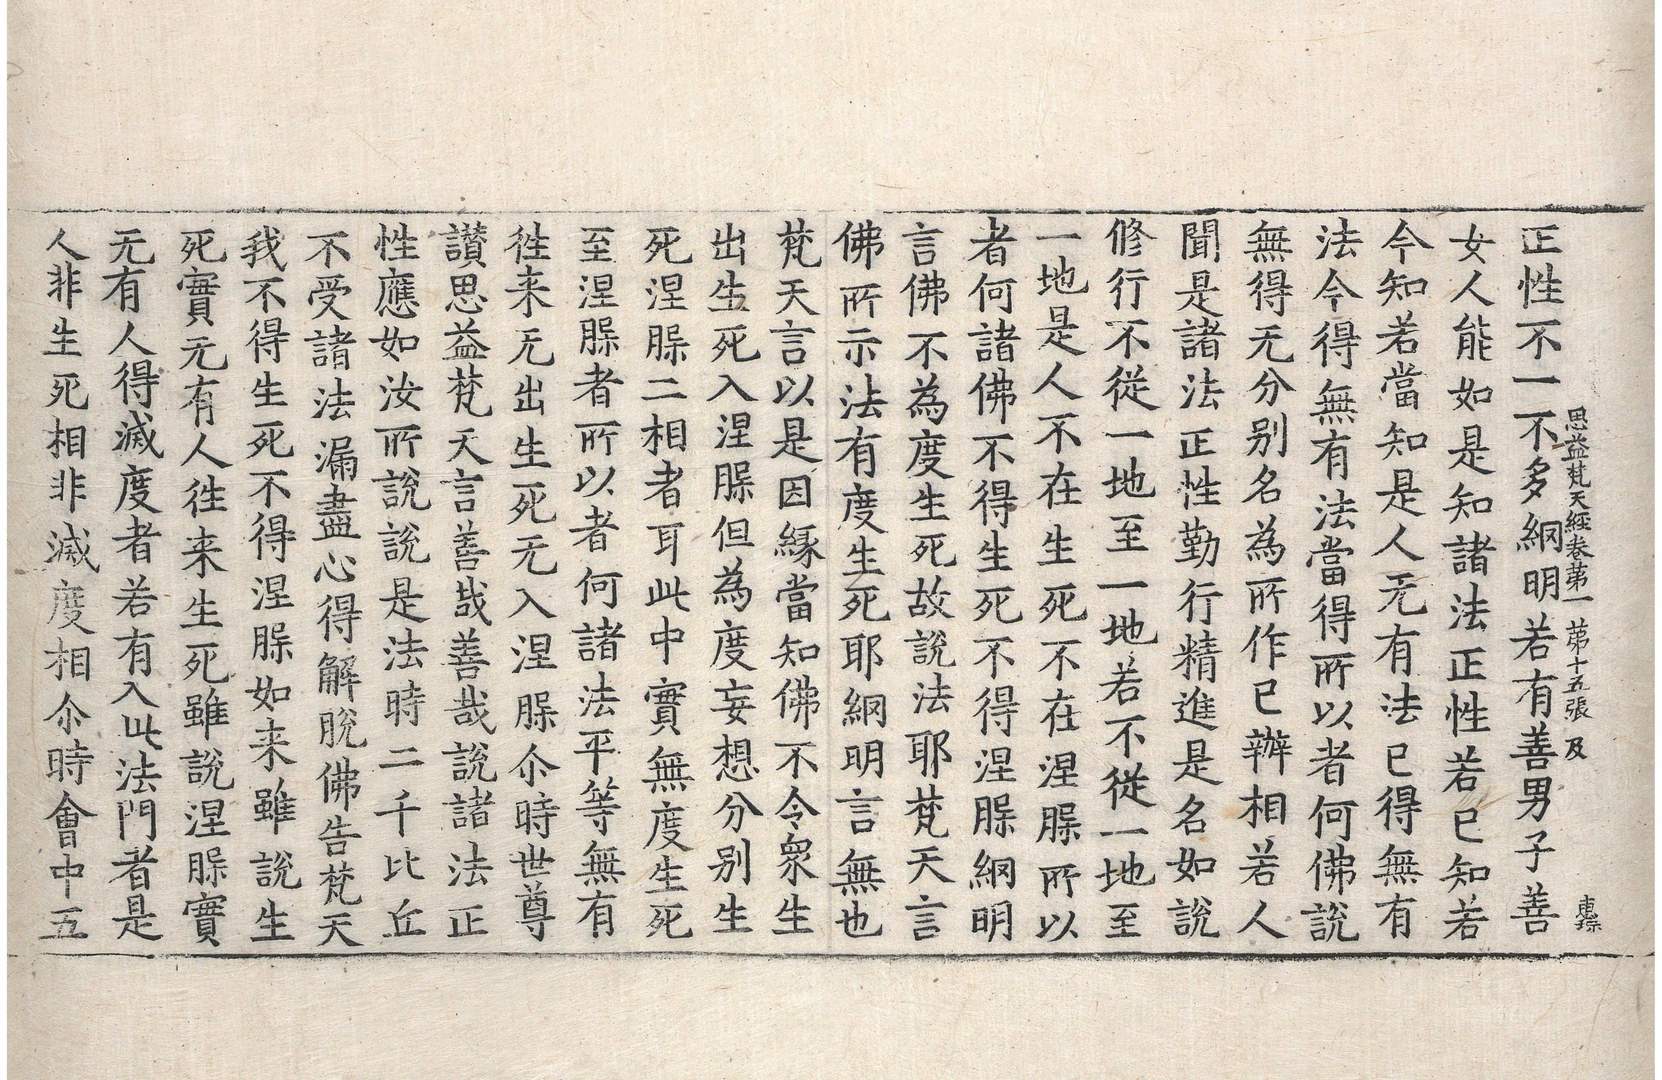 思益梵天經卷第一 第十五張 及
正性不一不多網明若有善男子善
女人能如是知諸法正性若已知若
今知若當知是人无有法已得無有
法今得無有法當得所以者何佛說
無得无分别名為所作已辦相若人
聞是諸法正性勤行精進是名如說
修行不從一地至一地若不從一地至
一地是人不在生死不在涅槃所以
者何諸佛不得生死不得涅槃網明
言佛不為度生死故說法耶梵天言
佛所示法有度生死耶網明言無也
梵天言以是因緣當知佛不令衆生
出生死入涅槃但為度妄想分别生
死涅槃二相者耳此中實無度生死
至涅槃者所以者何諸法平等無有
往来无出生死无入涅槃尒時世尊
讃思益梵天言善哉善哉說諸法正
性應如汝所說說是法時二千比丘
不受諸法漏盡心得解脫佛告梵天
我不得生死不得涅槃如来雖說生
死實无有人往来生死雖說涅槃實
无有人得滅度者若有入此法門者是
人非生死相非滅度相尒時會中五